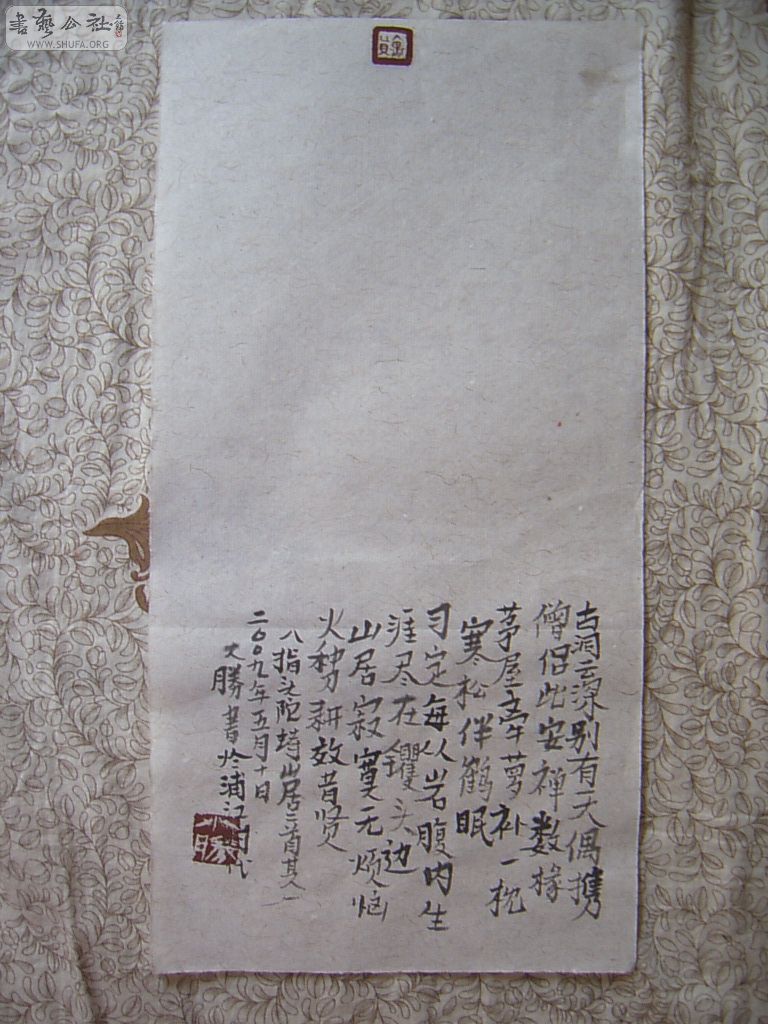 書藝公社
WWW.SHUFA.ORG
古洞云深别有天偶携
僧侣此安禅数椽
茅屋牵萝补一枕
寒松伴鹤眠
习定每从岩腹内生
涯尽在钁头边
山居寂寞无烦恼
火种刀耕效昔贤
八指头陀诗山居二首其一
二〇〇九年五月十日
大勝書於浦江时代